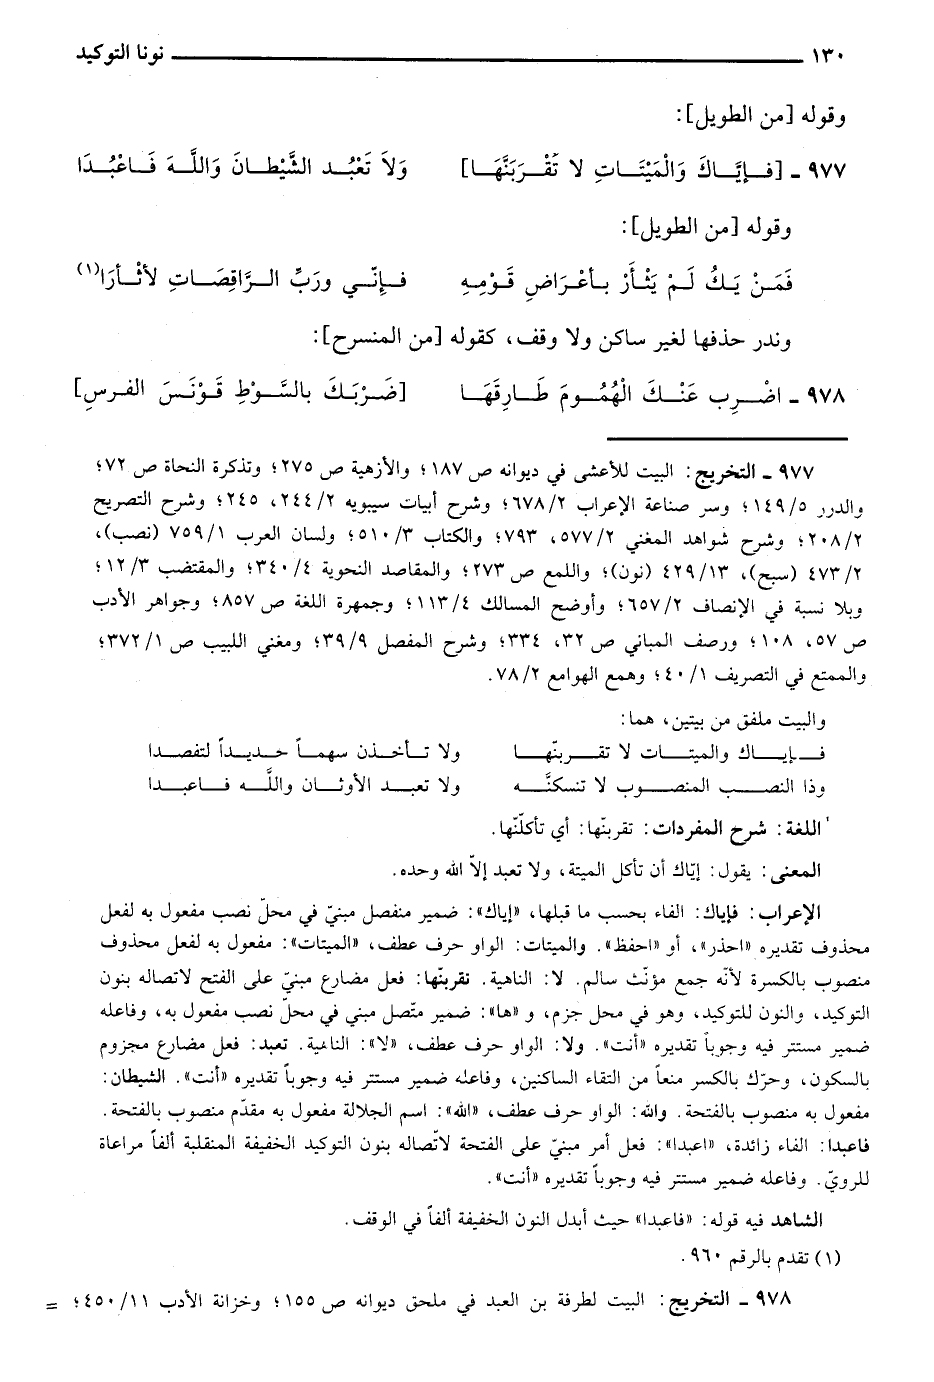 ١٣٠ نونا التوكيد
وقوله [من الطويل]:
٩٧٧ ـ [فـإيَّاكَ وَالْمَيْتَـاتِ لا تَقْـرَبَنَّهَـا] وَلاَ تَعْبُـدِ الشَّيْطَـانَ وَاللَّـهَ فَـاعْبُـدَا
وقوله [من الطويل]:
فَمَنْ يَـكُ لَـمْ يَثْـأَرْ بـأعْرَاضِ قَـوْمِـهِ فـإنّـي ورَبِّ الـرَّاقِصَـاتِ لأثْـأرَا(١)
وندر حذفها لغير ساكن ولا وقف، كقوله [من المنسرح]:
٩٧٨ ـ اضْرِبَ عَنْـكَ الْهُمُـومَ طَـارِقَهَـا [ضَرْبَكَ بالسَّوْطِ قَوْنَسَ الفرسِ]
٩٧٧ ـ التخريج: البيت للأعشى في ديوانه ص ١٨٧؛ والأزهية ص ٢٧٥؛ وتذكرة النحاة ص ٧٢؛
والدرر ١٤٩/٥؛ وسر صناعة الإعراب ٦٧٨/٢؛ وشرح أبيات سيبويه ٢٤٤/٢، ٢٤٥؛ وشرح التصريح
٢٠٨/٢؛ وشرح شواهد المغني ٥٧٧/٢، ٧٩٣؛ والكتاب ٥١٠/٣؛ ولسان العرب ٧٥٩/١ (نصب)،
٤٧٣/٢ (سبح)، ٤٢٩/١٣ (نون)؛ واللمع ص ٢٧٣؛ والمقاصد النحوية ٣٤٠/٤؛ والمقتضب ١٢/٣؛
وبلا نسبة في الإنصاف ٦٥٧/٢؛ وأوضح المسالك ١١٣/٤؛ وجمهرة اللغة ص ٨٥٧؛ وجواهر الأدب
ص ٥٧، ١٠٨؛ ورصف المباني ص ٣٢، ٣٣٤؛ وشرح المفصل ٣٩/٩؛ ومغني اللبيب ص ٣٧٢/١؛
والممتع في التصريف ٤٠/١؛ وهمع الهوامع ٧٨/٢.
والبيت ملفق من بيتين، هما:
فـإيـاك والميتـات لا تقـربنّهـا ولا تـأخـذن سهمـاً حـديـداً لتفصـدا
وذا النصـب المنصـوب لا تنسكنَّـه ولا تعبـد الأوثـان واللَّـه فـاعبـدا
اللغة: شرح المفردات: تقربنّها: أي تأكلنّها.
المعنى: يقول: إيّاك أن تأكل الميتة، ولا تعبد إلاّ الله وحده.
الإعراب: فإياك: الفاء بحسب ما قبلها، «إياك»: ضمير منفصل مبنيّ في محلّ نصب مفعول به لفعل
محذوف تقديره «احذر»، أو «احفظ». والميتات: الواو حرف عطف، «الميتات»: مفعول به لفعل محذوف
منصوب بالكسرة لأنّه جمع مؤنّث سالم. لا: الناهية. نقربنّها: فعل مضارع مبنيّ على الفتح لاتصاله بنون
التوكيد، والنون للتوكيد، وهو في محل جزم، و «ها»: ضمير متّصل مبني في محلّ نصب مفعول به، وفاعله
ضمير مستتر فيه وجوباً تقديره «أنت». ولا: الواو حرف عطف، «لا»: الناهية. تعبد: فعل مضارع مجزوم
بالسكون، وحرّك بالكسر منعاً من التقاء الساكنين، وفاعله ضمير مستتر فيه وجوباً تقديره «أنت». الشيطان:
مفعول به منصوب بالفتحة. والله: الواو حرف عطف، «الله»: اسم الجلالة مفعول به مقدّم منصوب بالفتحة.
فاعبدا: الفاء زائدة، «اعبدا»: فعل أمر مبنيّ على الفتحة لاتّصاله بنون التوكيد الخفيفة المنقلبة ألفاً مراعاة
للرويّ. وفاعله ضمير مستتر فيه وجوباً تقديره «أنت».
الشاهد فيه قوله: «فاعبدا» حيث أبدل النون الخفيفة ألفاً في الوقف.
(١) تقدم بالرقم ٩٦٠.
٩٧٨ ـ التخريج: البيت لطرفة بن العبد في ملحق ديوانه ص ١٥٥؛ وخزانة الأدب ٤٥٠/١١؛ =